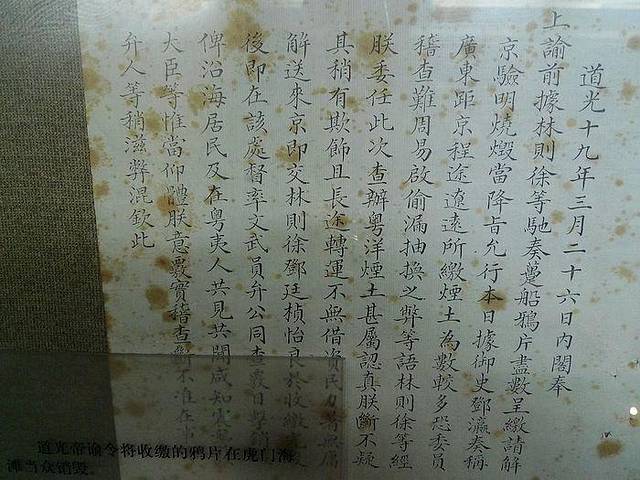 道光十九年三月二十六日內閣奉
上諭前據林則徐等馳奏躉船鴉片盡數呈繳請解
京驗明燒燬當降旨允行本日據御史鄧瀛奏稱
廣東距京程途遼遠所繳煙土為數較多恐委員
稽查難周易啟偷漏抽換之弊等語林則徐等經
朕委任此次查辦粵洋煙土甚屬認真朕斷不疑
其稍有欺飾且長途轉運不無借資民力著無庸
解送來京即交林則徐鄧廷楨怡良於收繳
後即在該處督率文武員弁公同查覈目擊銷
俾沿海居民及在粵夷人共見共聞咸知
大臣等惟當仰體朕意覈實稽查斷不准在事
弁人等稍滋弊混欽此
道光帝谕令将收缴的鸦片在虎门海
滩当众销毁。